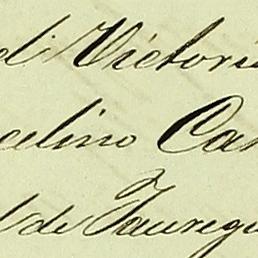 di Victori
celino Car
l de Jauregu